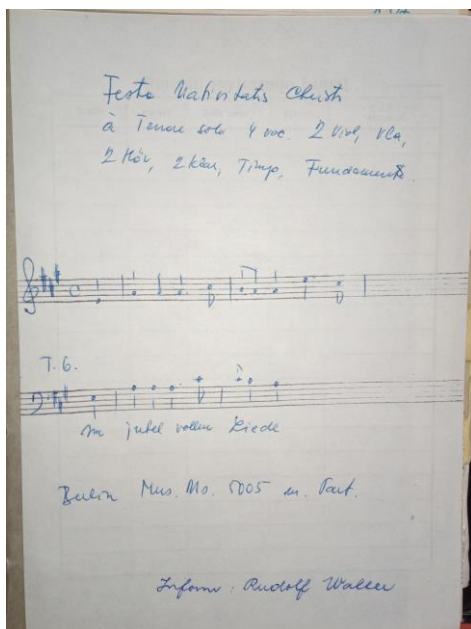 Festo Nativitatis Christi
à Tenore solo 4 voc. 2 Viol, Vla,
2 Hör, 2 Klar, Timp, Fundamento.
T. 6.
jubel vollen Liede
Berlin Mus. Ms. 5005 Part.
Inform: Rudolf Walter